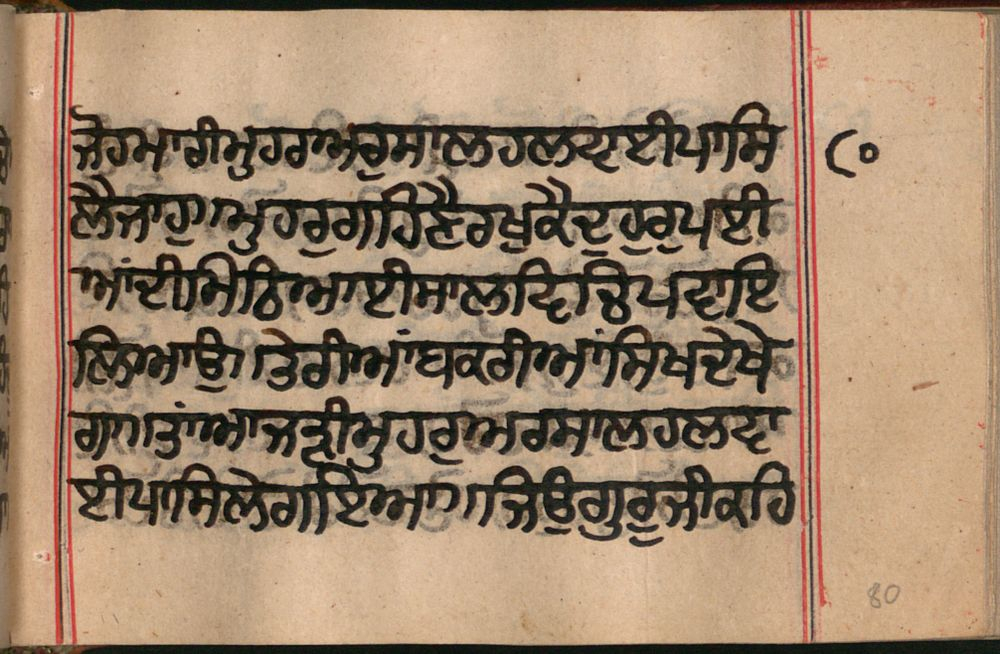 ਜੋਹਮਾਰੀਮੁਹਰਾਅਰੁਮਾਲਹਲਵਾਈਪਾਸਿ
ਲੈਜਾਹੁ॥ਮੁਹਰੁਗਹਿਣੈਰਖੁਕੈਦੁਹੁਰੁਪਈ
ਆਂਦੀਮਿਠਿਆਈਮਾਲਵਿਚਿਪਵਾਇ
ਲਿਆਉ॥ਤੇਰੀਆਂਬਕਰੀਆਂਸਿਖਦੇਖੇ
ਗਾ॥ਤਾਂਆਜੜੀਮੁਹਰੁਅਰਮਾਲਹਲਵਾ
ਈਪਾਸਿਲੇਗਇਆ॥ਜਿਉਗੁਰੁਜੀਕਹਿ
੮੦
80